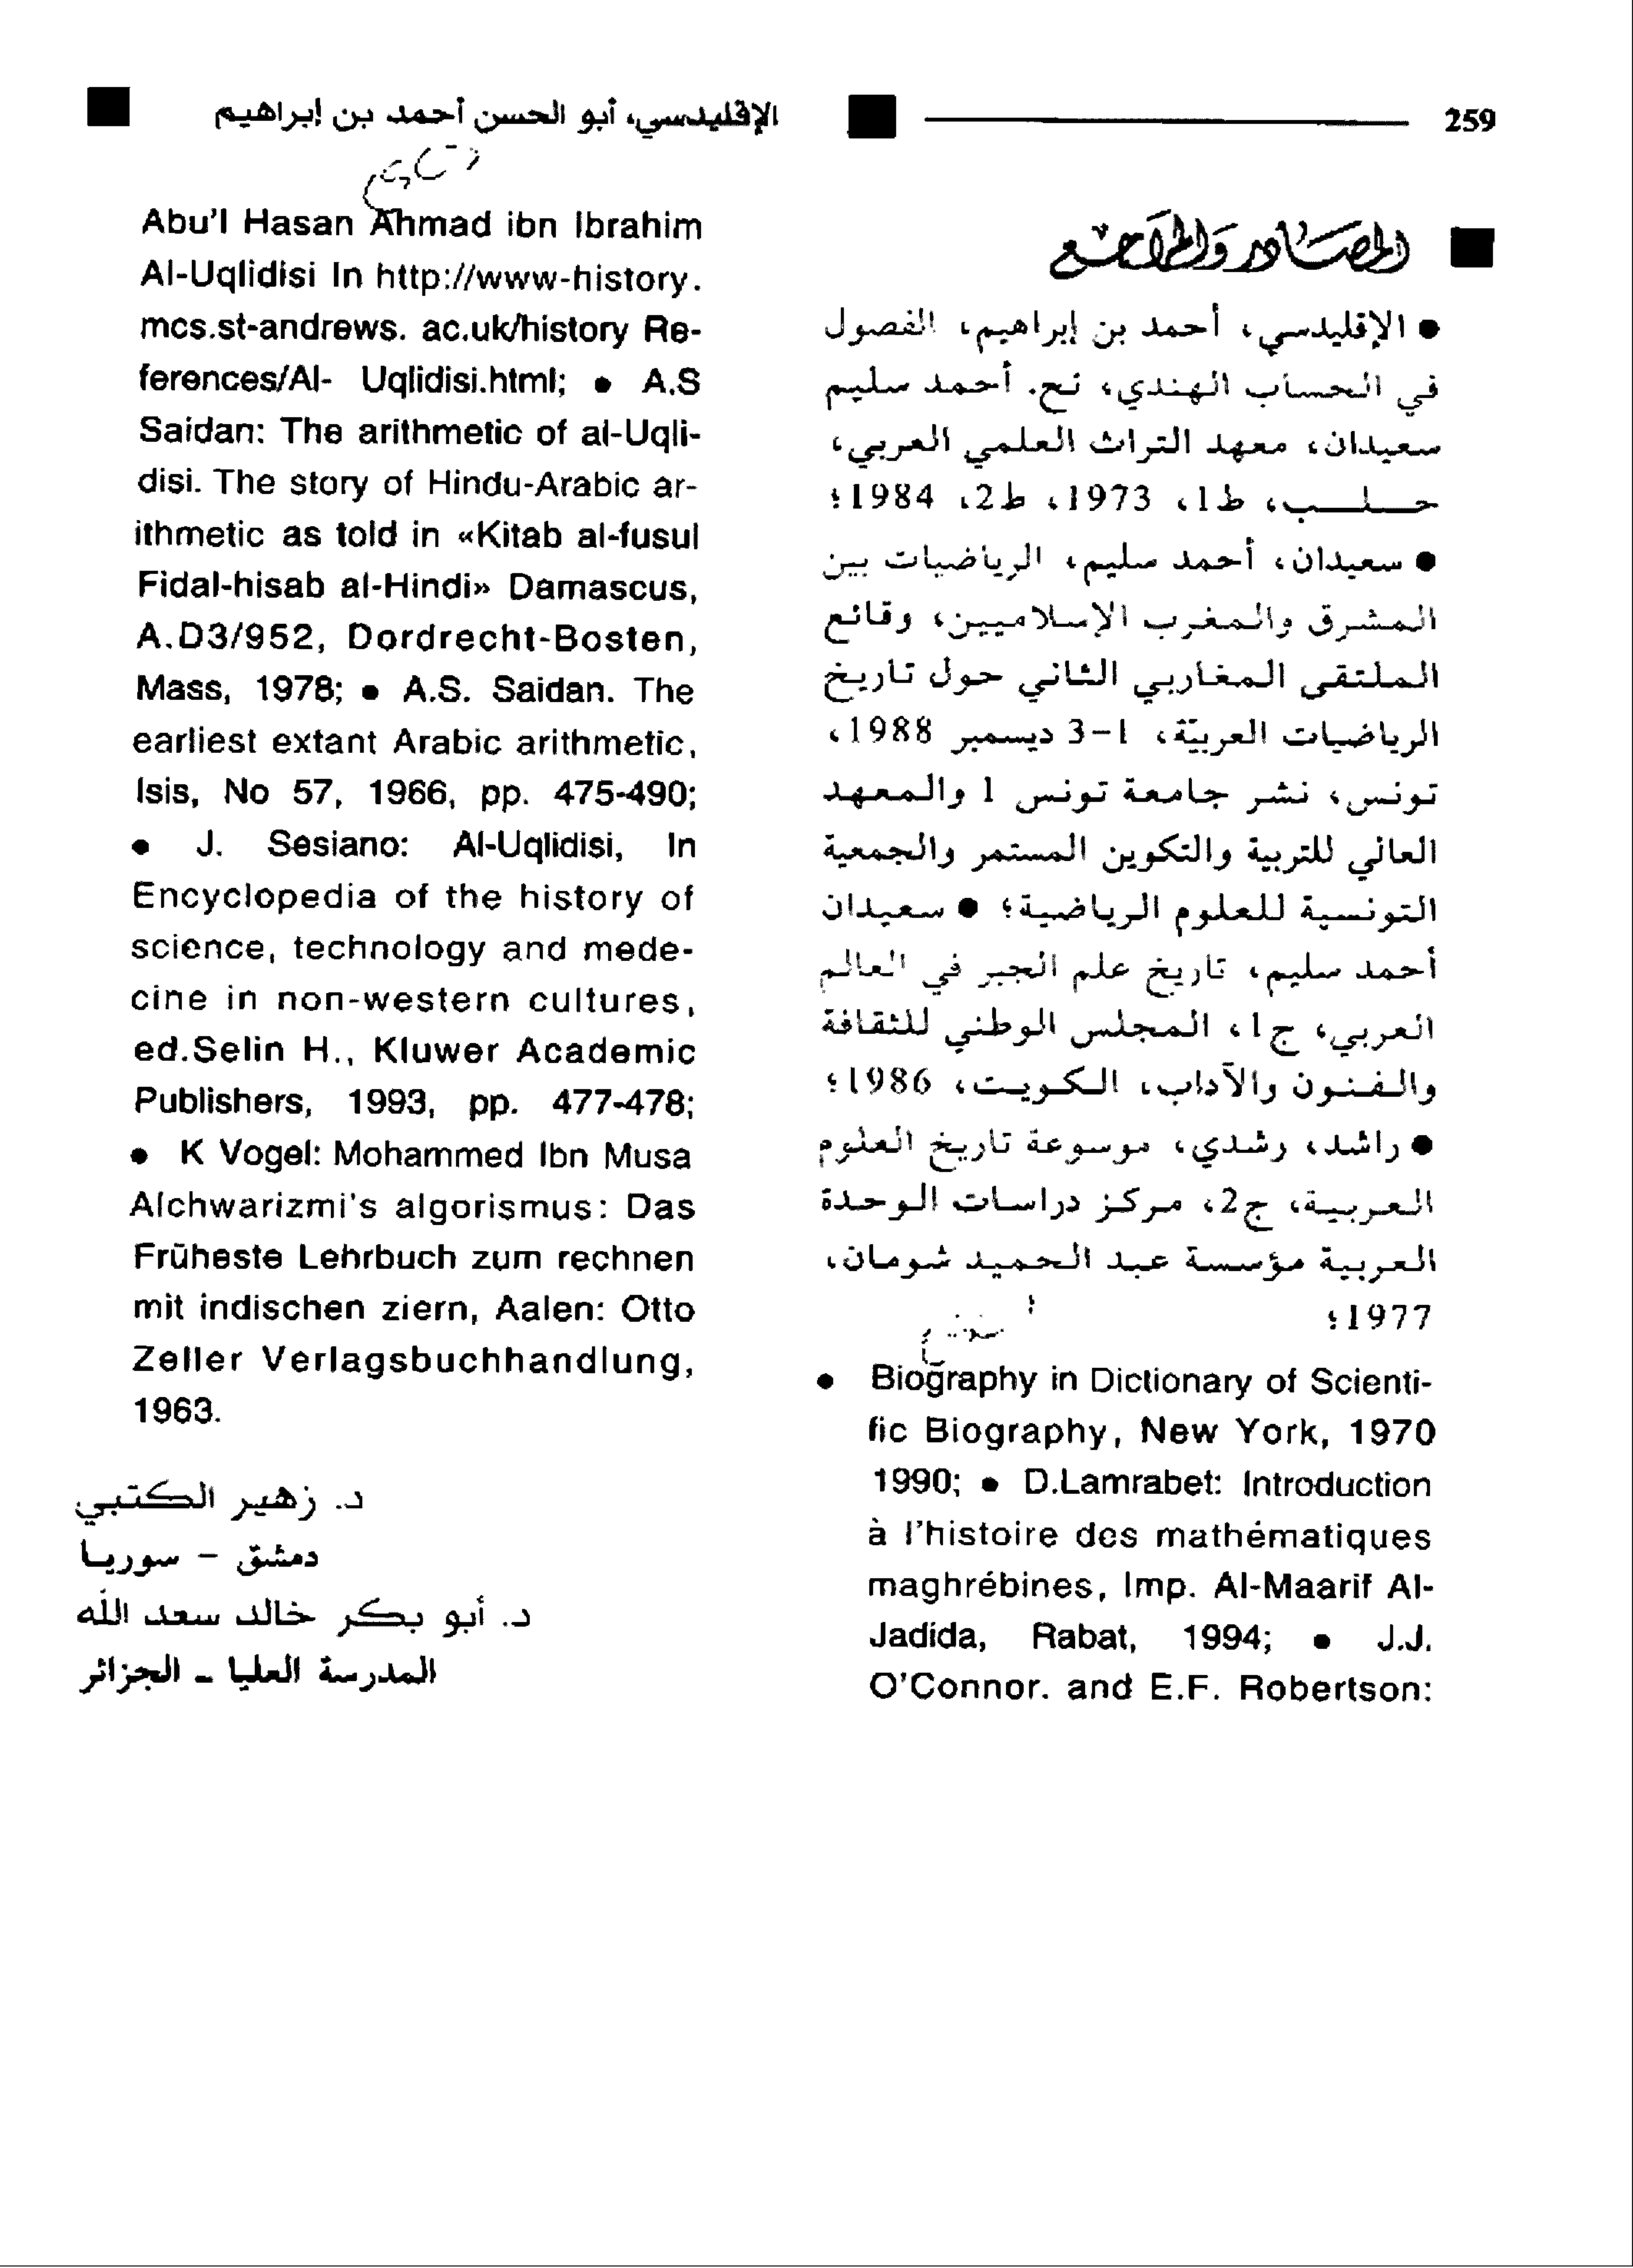 259
الإقليدسي، أبو الحسن أحمد بن إبراهيم
المصادر والمراجع
● الإقليدسي، أحمد بن إبراهيم، الفصول
في الحساب الهندي، تح. أحمد سليم
سعيدان، معهد التراث العلمي العربي،
حلب، ط1، 1973، ط2، 1984؛
● سعيدان، أحمد سليم، الرياضيات بين
المشرق والمغرب الإسلاميين، وقائع
الملتقى المغاربي الثاني حول تاريخ
الرياضيات العربيّة، 1-3 ديسمبر 1988،
تونس، نشر جامعة تونس 1 والمعهد
العالي للتربية والتكوين المستمر والجمعية
التونسية للعلوم الرياضية؛ ● سعيدان
أحمد سليم، تاريخ علم الجبر في العالم
العربي، ج1، المجلس الوطني للثقافة
والفنون والآداب، الكويت، 1986؛
● راشد، رشدي، موسوعة تاريخ العلوم
العربية، ج2، مركز دراسات الوحدة
العربية مؤسسة عبد الحميد شومان،
1977؛
● Biography in Dictionary of Scienti-
fic Biography, New York, 1970
1990; ● D.Lamrabet: Introduction
à l'histoire des mathématiques
maghrébines, Imp. Al-Maarif Al-
Jadida, Rabat, 1994; ● J.J.
O'Connor. and E.F. Robertson:
Abu'l Hasan Ahmad ibn Ibrahim
Al-Uqlidisi In http://www-history.
mcs.st-andrews. ac.uk/history Re-
ferences/Al- Uqlidisi.html; ● A.S
Saidan: The arithmetic of al-Uqli-
disi. The story of Hindu-Arabic ar-
ithmetic as told in «Kitab al-fusul
Fidal-hisab al-Hindi» Damascus,
A.D3/952, Dordrecht-Bosten,
Mass, 1978; ● A.S. Saidan. The
earliest extant Arabic arithmetic,
Isis, No 57, 1966, pp. 475-490;
● J. Sesiano: Al-Uqlidisi, In
Encyclopedia of the history of
science, technology and mede-
cine in non-western cultures,
ed.Selin H., Kluwer Academic
Publishers, 1993, pp. 477-478;
● K Vogel: Mohammed Ibn Musa
Alchwarizmi's algorismus: Das
Früheste Lehrbuch zum rechnen
mit indischen ziern, Aalen: Otto
Zeller Verlagsbuchhandlung,
1963.
د. زهير الكتبي
دمشق - سوريا
د. أبو بكر خالد سعد الله
المدرسة العليا - الجزائر